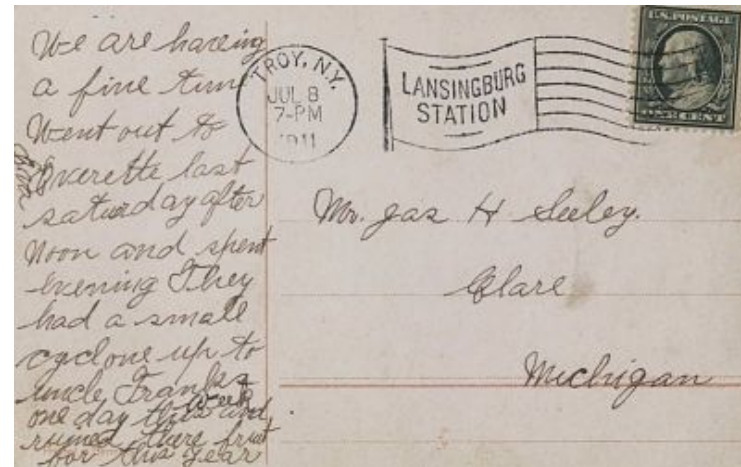 We are having
a fine time
Went out to
Everette last
saturday after
noon and spent
evening They
had a small
cyclone up to
uncle Franks
one day this week and
ruined there fruit
for this year
TROY, N.Y.
JUL 8
7-PM
1911
LANSINGBURG
STATION
U.S. POSTAGE
ONE CENT
Mr. Jas H Seeley.
Clare
Michigan